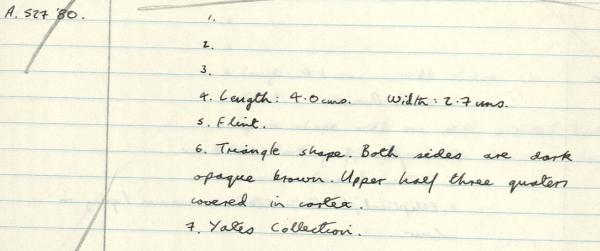 A. 527 '80.
1.
2.
3.
4. Length: 4.0 cms. Width: 2.7 cms.
5. Flint.
6. Triangle shape. Both sides are dark
opaque brown. Upper half three quarters
covered in cortex.
7. Yates Collection.